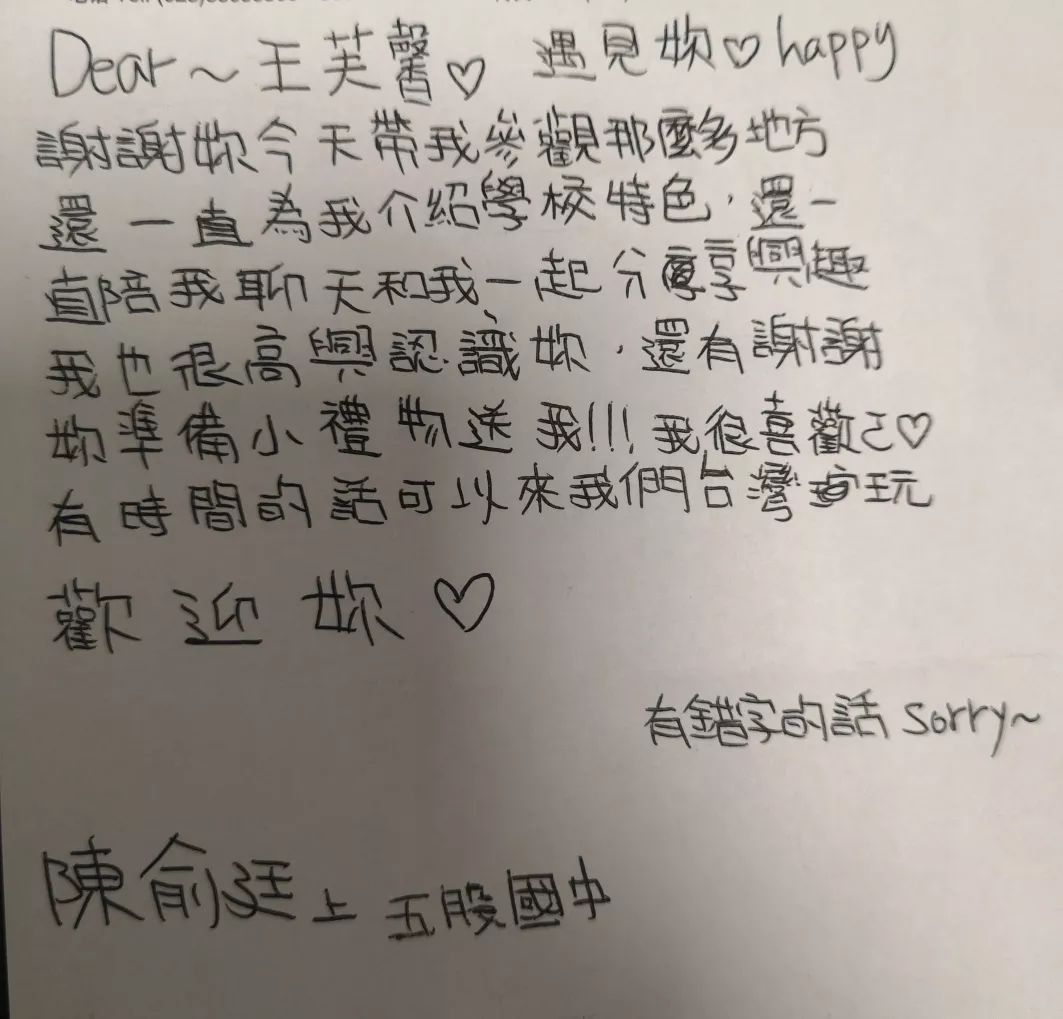 Dear~王芙馨♡ 遇見妳♡happy
謝謝妳今天帶我參觀那麼多地方
還一直為我介紹學校特色,還一
直陪我聊天和我一起分享興趣
我也很高興認識妳,還有謝謝
妳準備小禮物送我!!!我很喜歡ㄛ♡
有時間的話可以來我們台灣玩
歡迎妳♡
有錯字的話sorry~
陳俞廷上 五股國中